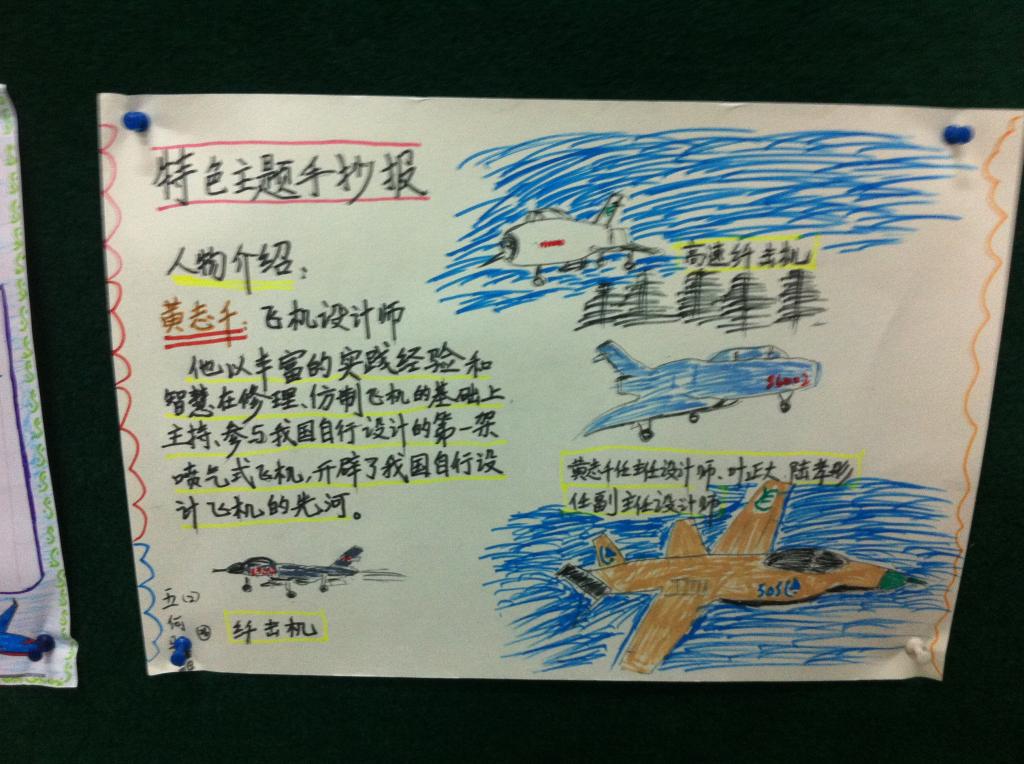 特色主题手抄报
人物介绍：
黄志千：飞机设计师
他以丰富的实践经验和
智慧在修理、仿制飞机的基础上
主持、参与我国自行设计的第一架
喷气式飞机，开辟了我国自行设
计飞机的先河。
歼击机
五(2)
何
高速歼击机
黄志千任主任设计师、叶正大 陆孝彭
任副主任设计师